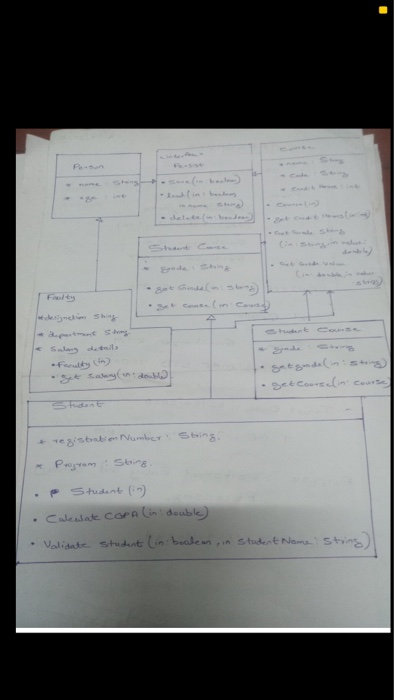 Person
* name : String
* age : int
<interface>
Persist
• Save(in : boolean)
• load(in : boolean
in name String)
• delete(in : boolean)
Course
* name : String
* Code : String
* Credit Hours : int
• Course(in)
• Get Credit Hours(in : int)
• Get Grade String
(in : String, in value :
double)
• Get Grade Value
(in : double, in value
String)
Student Course
* grade : String
• get Grade(in : String)
• get Course(in : Course)
Faculty
* designation String
* department String
* Salary details
• Faculty (in)
• get Salary(in : double)
Student Course
* grade : String
• getgrade(in : String)
• getCourse(in : Course)
Student
* registrationNumber : String.
* Program : String.
• Student (in)
• Calculate CGPA (in : double)
• Validate Student (in : boolean, in StudentName : String)